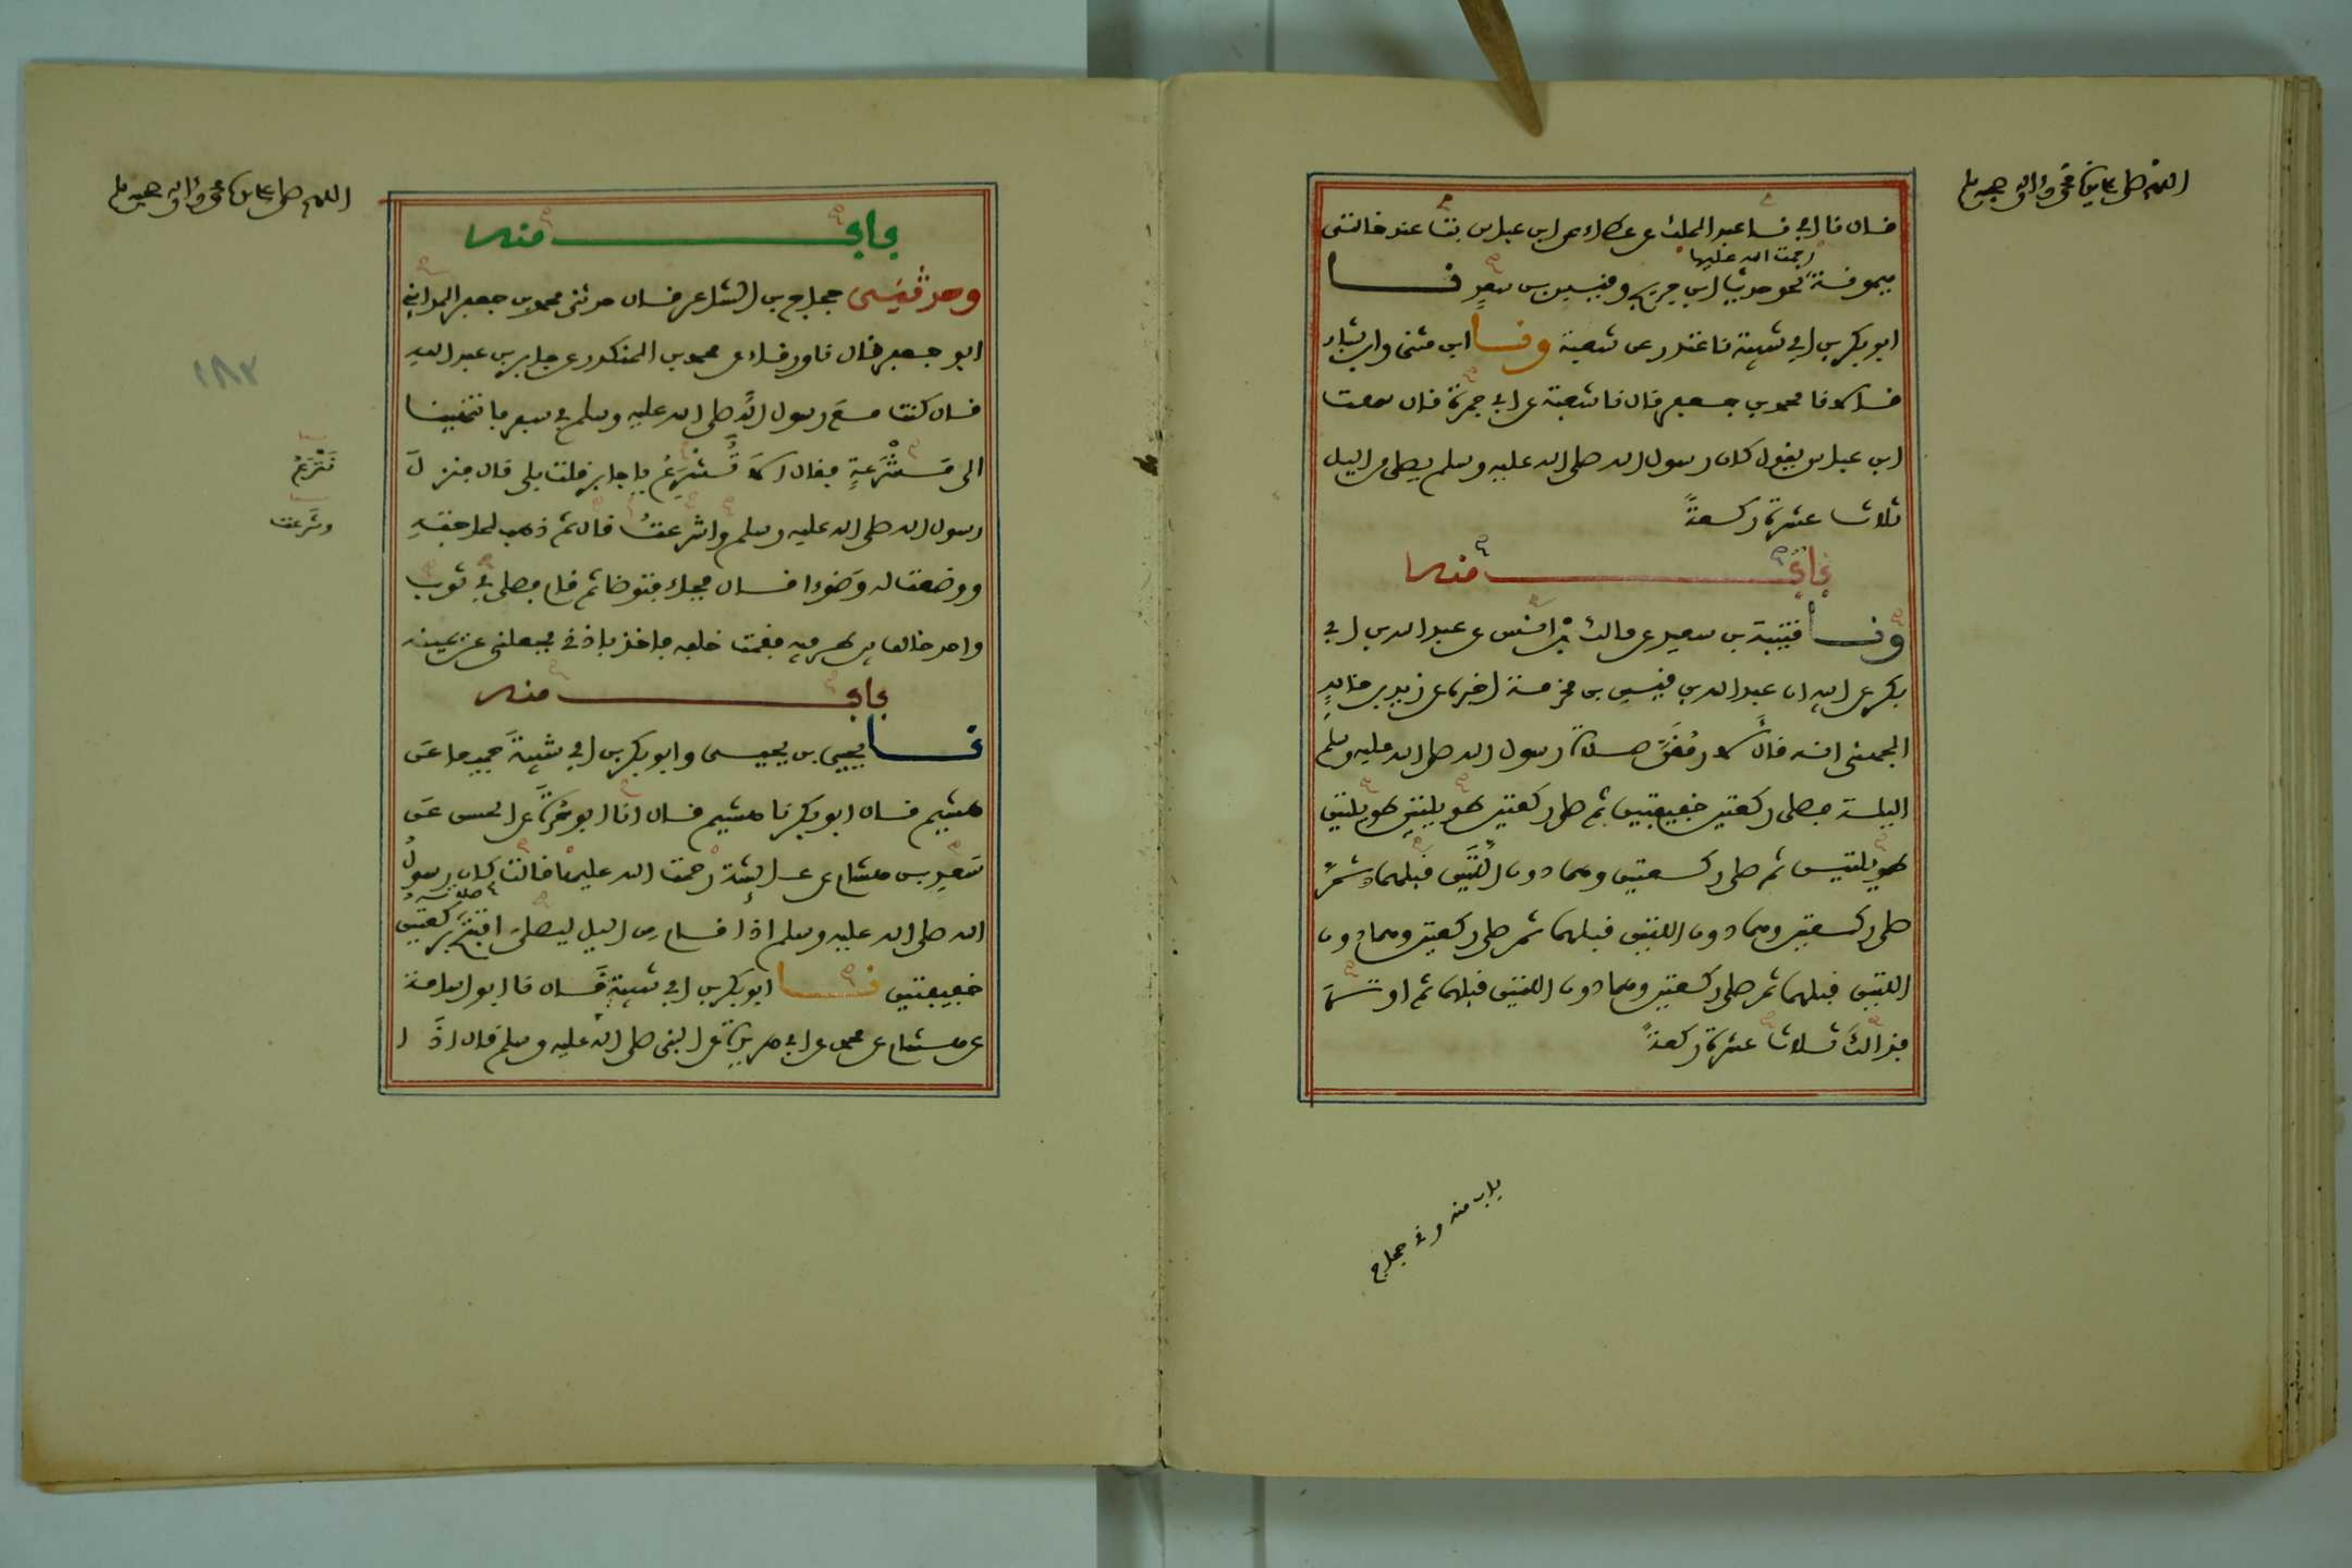 اللهم صل على سيدنا محمد وءاله وصحبه وسلم
قال نا ابي نا عبد الملك عن عطاء عن ابن عباس بت عند خالتي
رحمت الله عليها
ميمونة نحو حديث ابن جريج وقيس بن سعد نا
ابو بكر بن ابي شيبة نا غندر عن شعبة ونا ابن مثنى وابن بشار
قالا نا محمد بن جعفر قال نا شعبة عن ابي جمرة قال سمعت
ابن عباس يقول كان رسول الله صلى الله عليه وسلم يصلي من اليل
ثلاث عشرة ركعة
باب منه
ونا قتيبة بن سعيد عن مالك بن انس عن عبد الله بن ابي
بكر عن ابيه ان عبد الله بن قيس بن مخرمة اخبره عن زيد بن خالد
الجهني انه قال لارمقن صلاة رسول الله صلى الله عليه وسلم
الليلة فصلى ركعتين خفيفتين ثم صلى ركعتين طويلتين طويلتين
طويلتين ثم صلى ركعتين وهما دون اللتين قبلهما ثم
صلى ركعتين وهما دون اللتين قبلهما ثم صلى ركعتين وهما دون
اللتين قبلهما ثم صلى ركعتين وهما دون اللتين قبلهما ثم اوتر
فذالك ثلاث عشرة ركعة
باب منه وني حجاج
اللهم صل على سيدنا محمد وءاله وصحبه وسلم
باب منه
وحدثني حجاج بن الشاعر قال حدثني محمد بن جعفر المدائني
ابو جعفر قال نا ورقاء عن محمد بن المنكدر عن جابر بن عبد الله
قال كنت مع رسول الله صلى الله عليه وسلم في سفر فانتهينا
الى مشرعة فقال الا تشرع يا جابر قلت بلى قال فنزل
رسول الله صلى الله عليه وسلم واشرعت قال ثم ذهب لحاجته
ووضعت له وضوءا قال فجاء فتوضا ثم قام فصلى في ثوب
واحد خالف بين طرفيه فقمت خلفه فاخذ باذني فجعلني عن يمينه
باب منه
نا يحيى بن يحيى وابو بكر بن ابي شيبة جميعا عن
هشيم قال ابو بكر نا هشيم قال انا ابو حرة عن الحسن عن
سعد بن هشام عن عائشة رحمت الله عليها قالت كان رسول
الله صلى الله عليه وسلم اذا قام من اليل ليصلي افتتح صلاته بركعتين
خفيفتين نا ابو بكر بن ابي شيبة قال نا ابو اسامة
عن هشام عن محمد عن ابي هريرة عن النبي صلى الله عليه وسلم قال اذا
١٨٣
تشرع
وشرعت